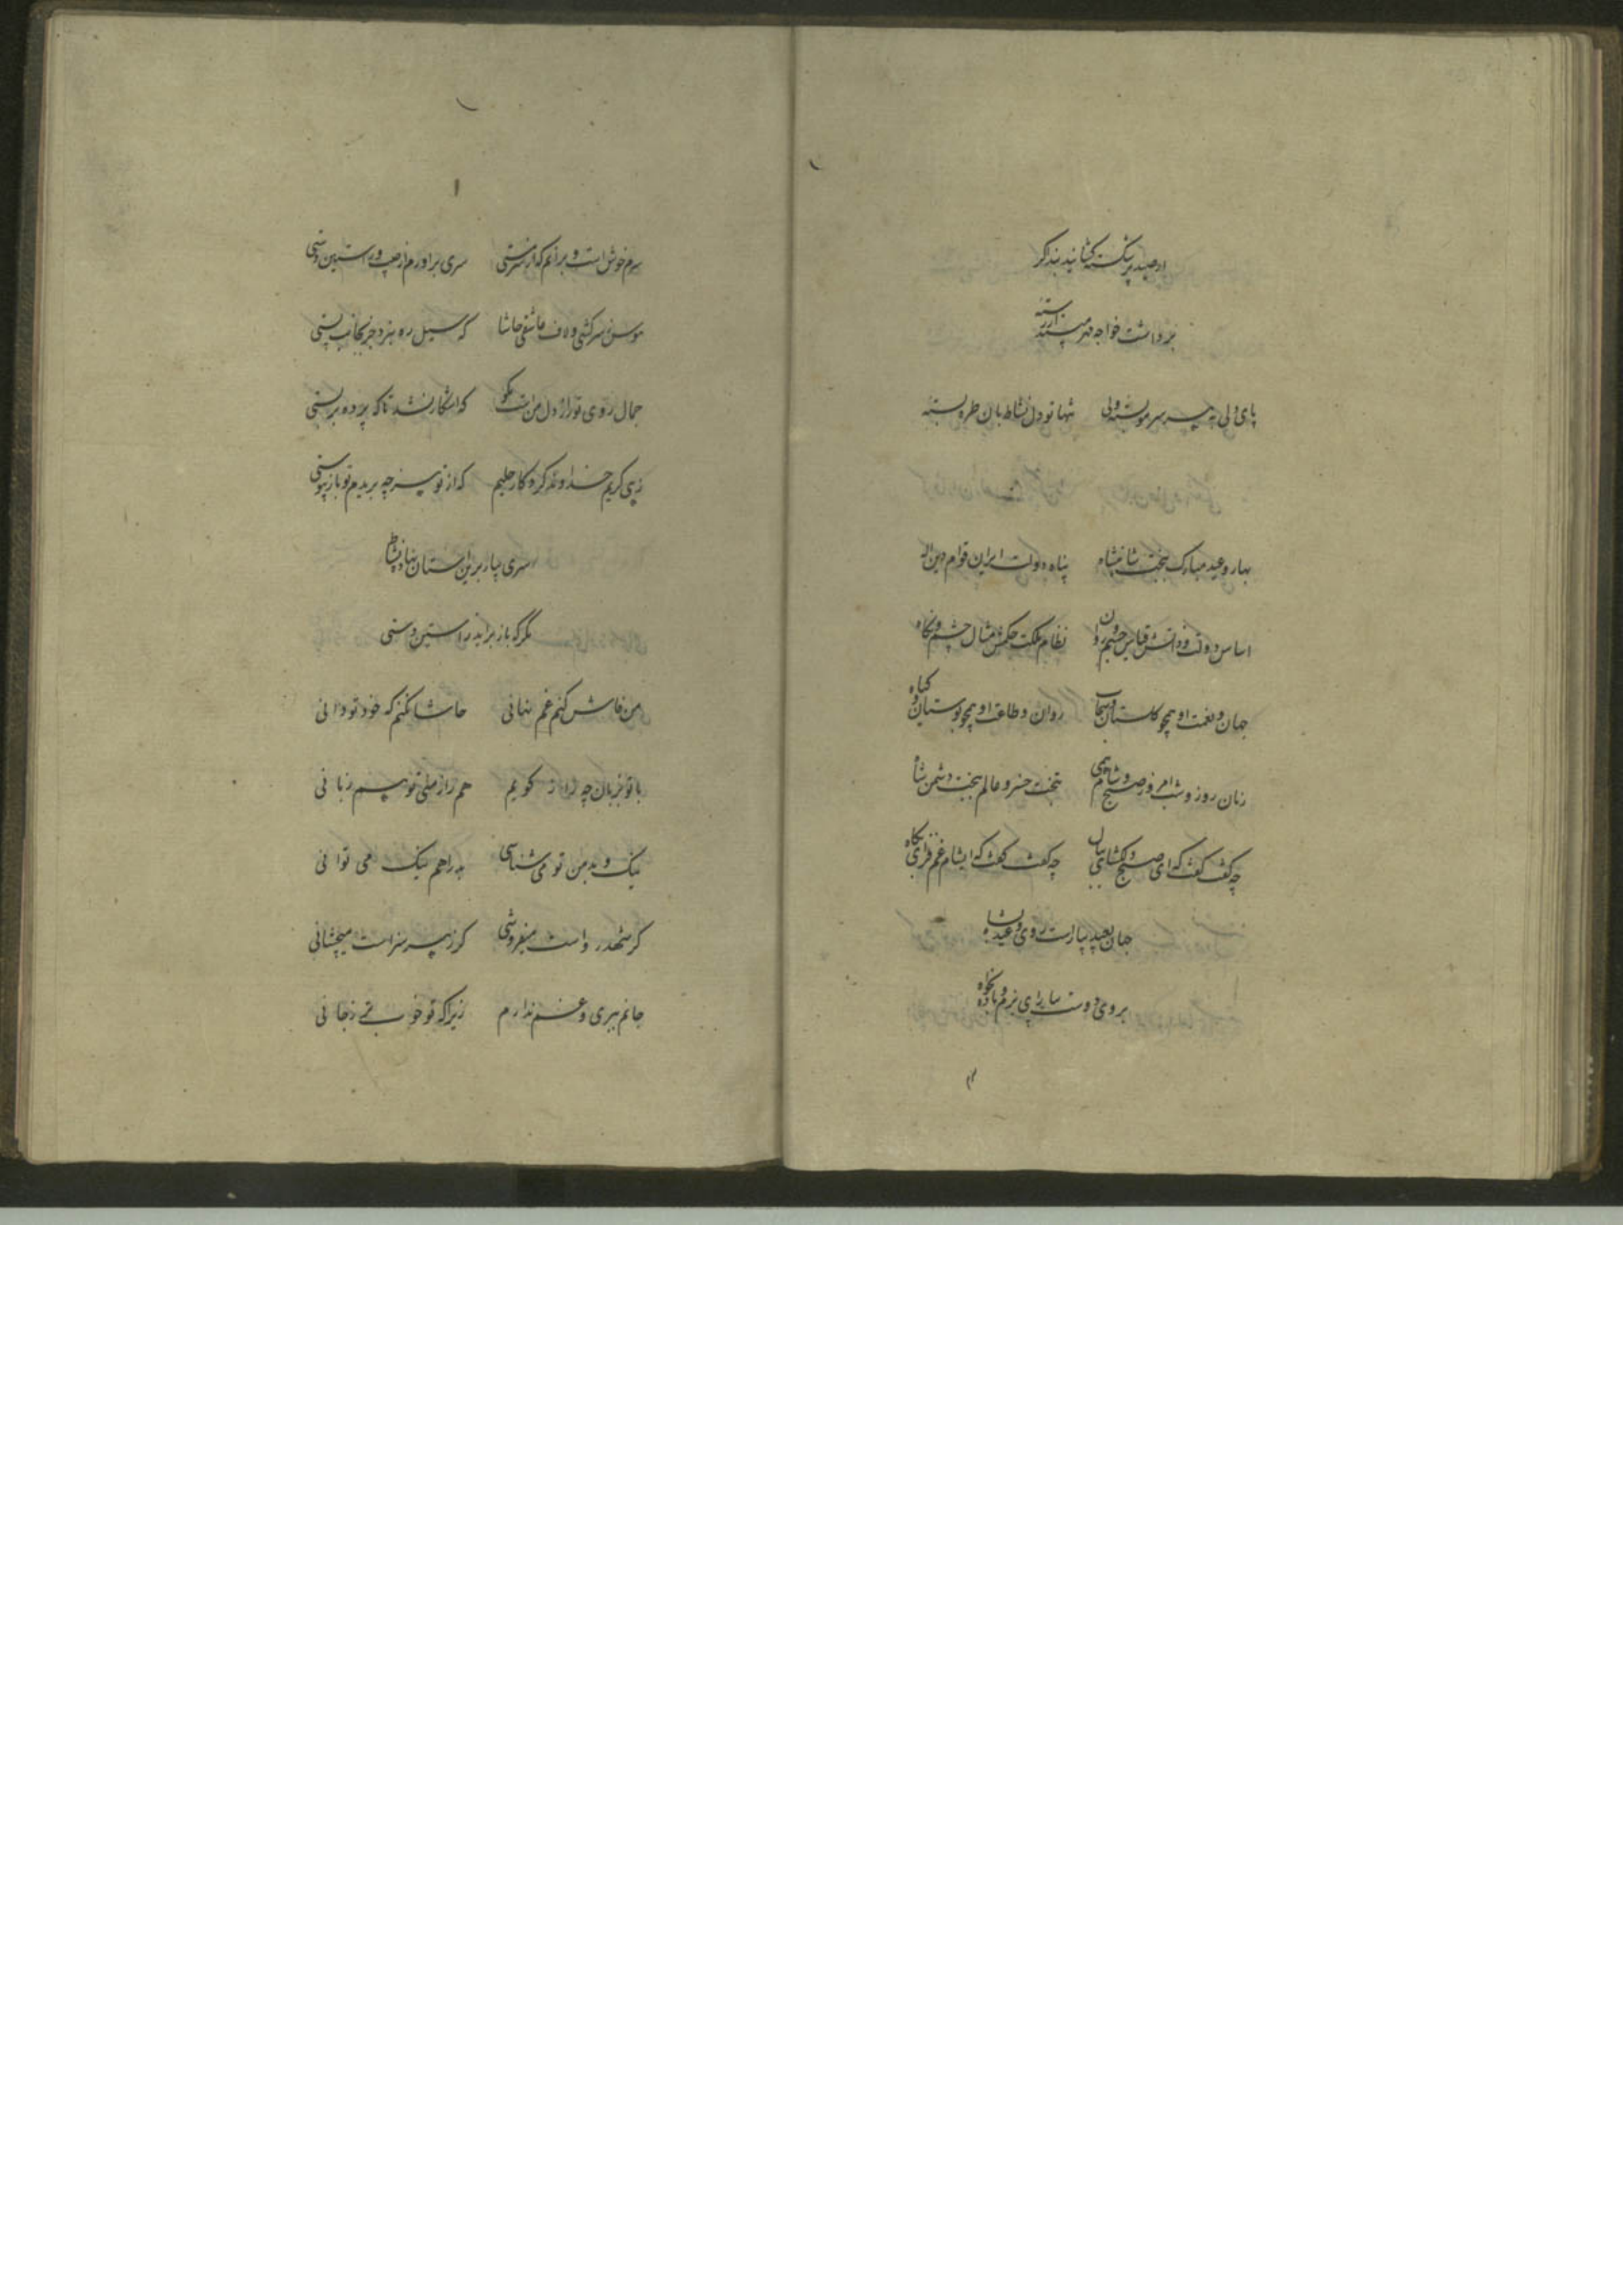 از صید پر شکسته گشایند بند اگر
برداشت خواجه مهر
پای دلی به هر سر مو بسته ولی تنها تو دل نشاط بان طره بسته
بهار و عید مبارک بخت شاهنشاه پناه دولت ایران قوام دین اله
اساس دولت و ذاتش قیاس جسم و روان نظام ملکت و حکمش مثال چشم و نگاه
جهان و نعمت او همچو گلستان و سحاب روان و طاعت او همچو بوستان و گیاه
زمان روز و شب امروز صبح و شام همی بتخت خسرو عالم ببخت دشمن شاه
چه گفت گفت که ای صبح دلگشای ببال چه گفت گفت که ایشام غم فزای بکاه
جهان بعید بیاراست روی و عید بشاه
بروی دوست بیارای بزم و باده بخواه
۲
۱
سرم خوش است و برانم که از سر مستی سری براورم از جیب و راستین دستی
من سرکشی و لاف عاشقی حاشا که سیل ره نبرد جز بجانب پستی
جمال روی تو راز دل من است نگو که اشکار نشد تا که پرده بر بستی
زهی کریم خداوند کردگار حلیم که از تو هر چه بریدم تو باز پیوستی
سری بیار برین استان نهاد نشاط
مگر که باز براید ز استین دستی
من فاش کنم غم نهانی حاشا نکنم که خود تو دانی
با تو بزبان چه راز گویم هم راز دلی تو هم زبانی
نیک و بد من تو می شناسی بد را هم نیک می توانی
گر شهد رواست میفروشی گر زهر سزاست میچشانی
جانم ببری و غم ندارم زیرا که تو خوبتر ز جانی